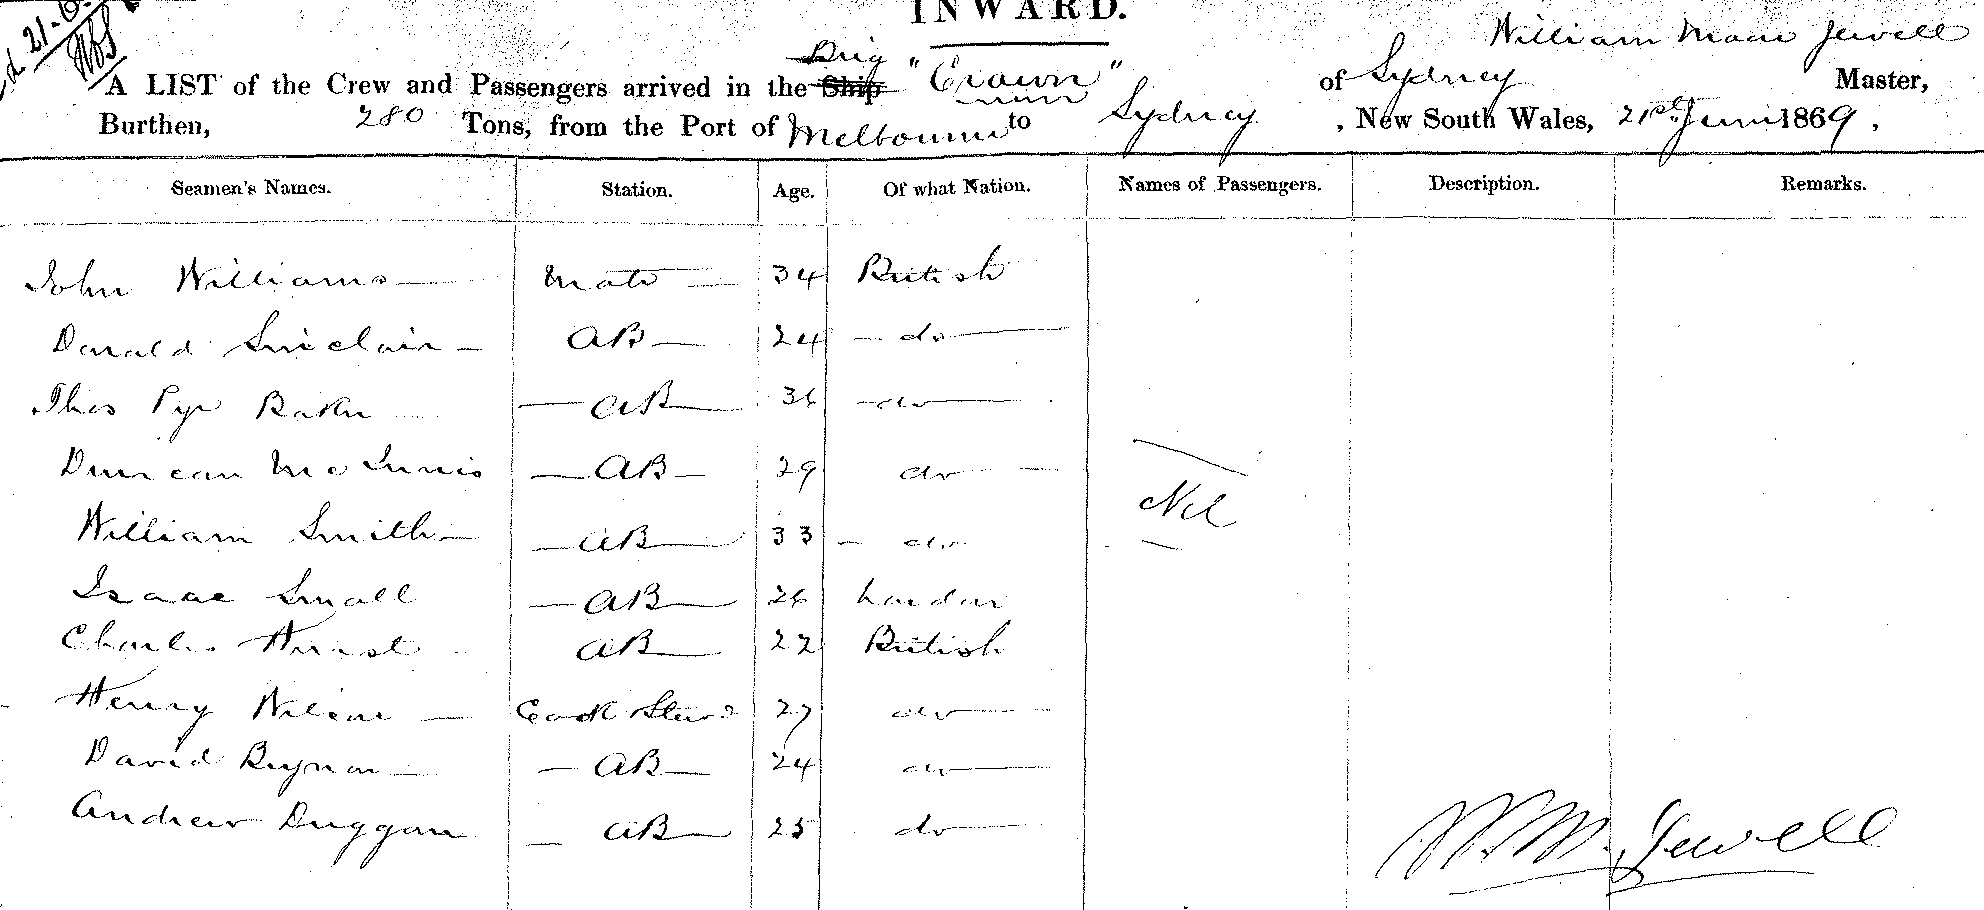 INWARD.
d 21.6.
William Maer Jewell
A LIST of the Crew and Passengers arrived in the Ship Brig "Crown" of Sydney Master,
Burthen, 280 Tons, from the Port of Melbourne to Sydney, New South Wales, 21st June 1869.
Seamen's Names. Station. Age. Of what Nation. Names of Passengers. Description. Remarks.
John Williams Mate 34 British
Donald Sinclair AB 24 do
Thos Pye Baker AB 36 do
Duncan McInnis AB 29 do
Nil
William Smith AB 33 do
Isaac Small AB 26 London
Charles Hurst AB 22 British
Henry Wilson Cook Stewd 27 do
David Beynon AB 24 do
Andrew Duggan AB 25 do
W. M. Jewell